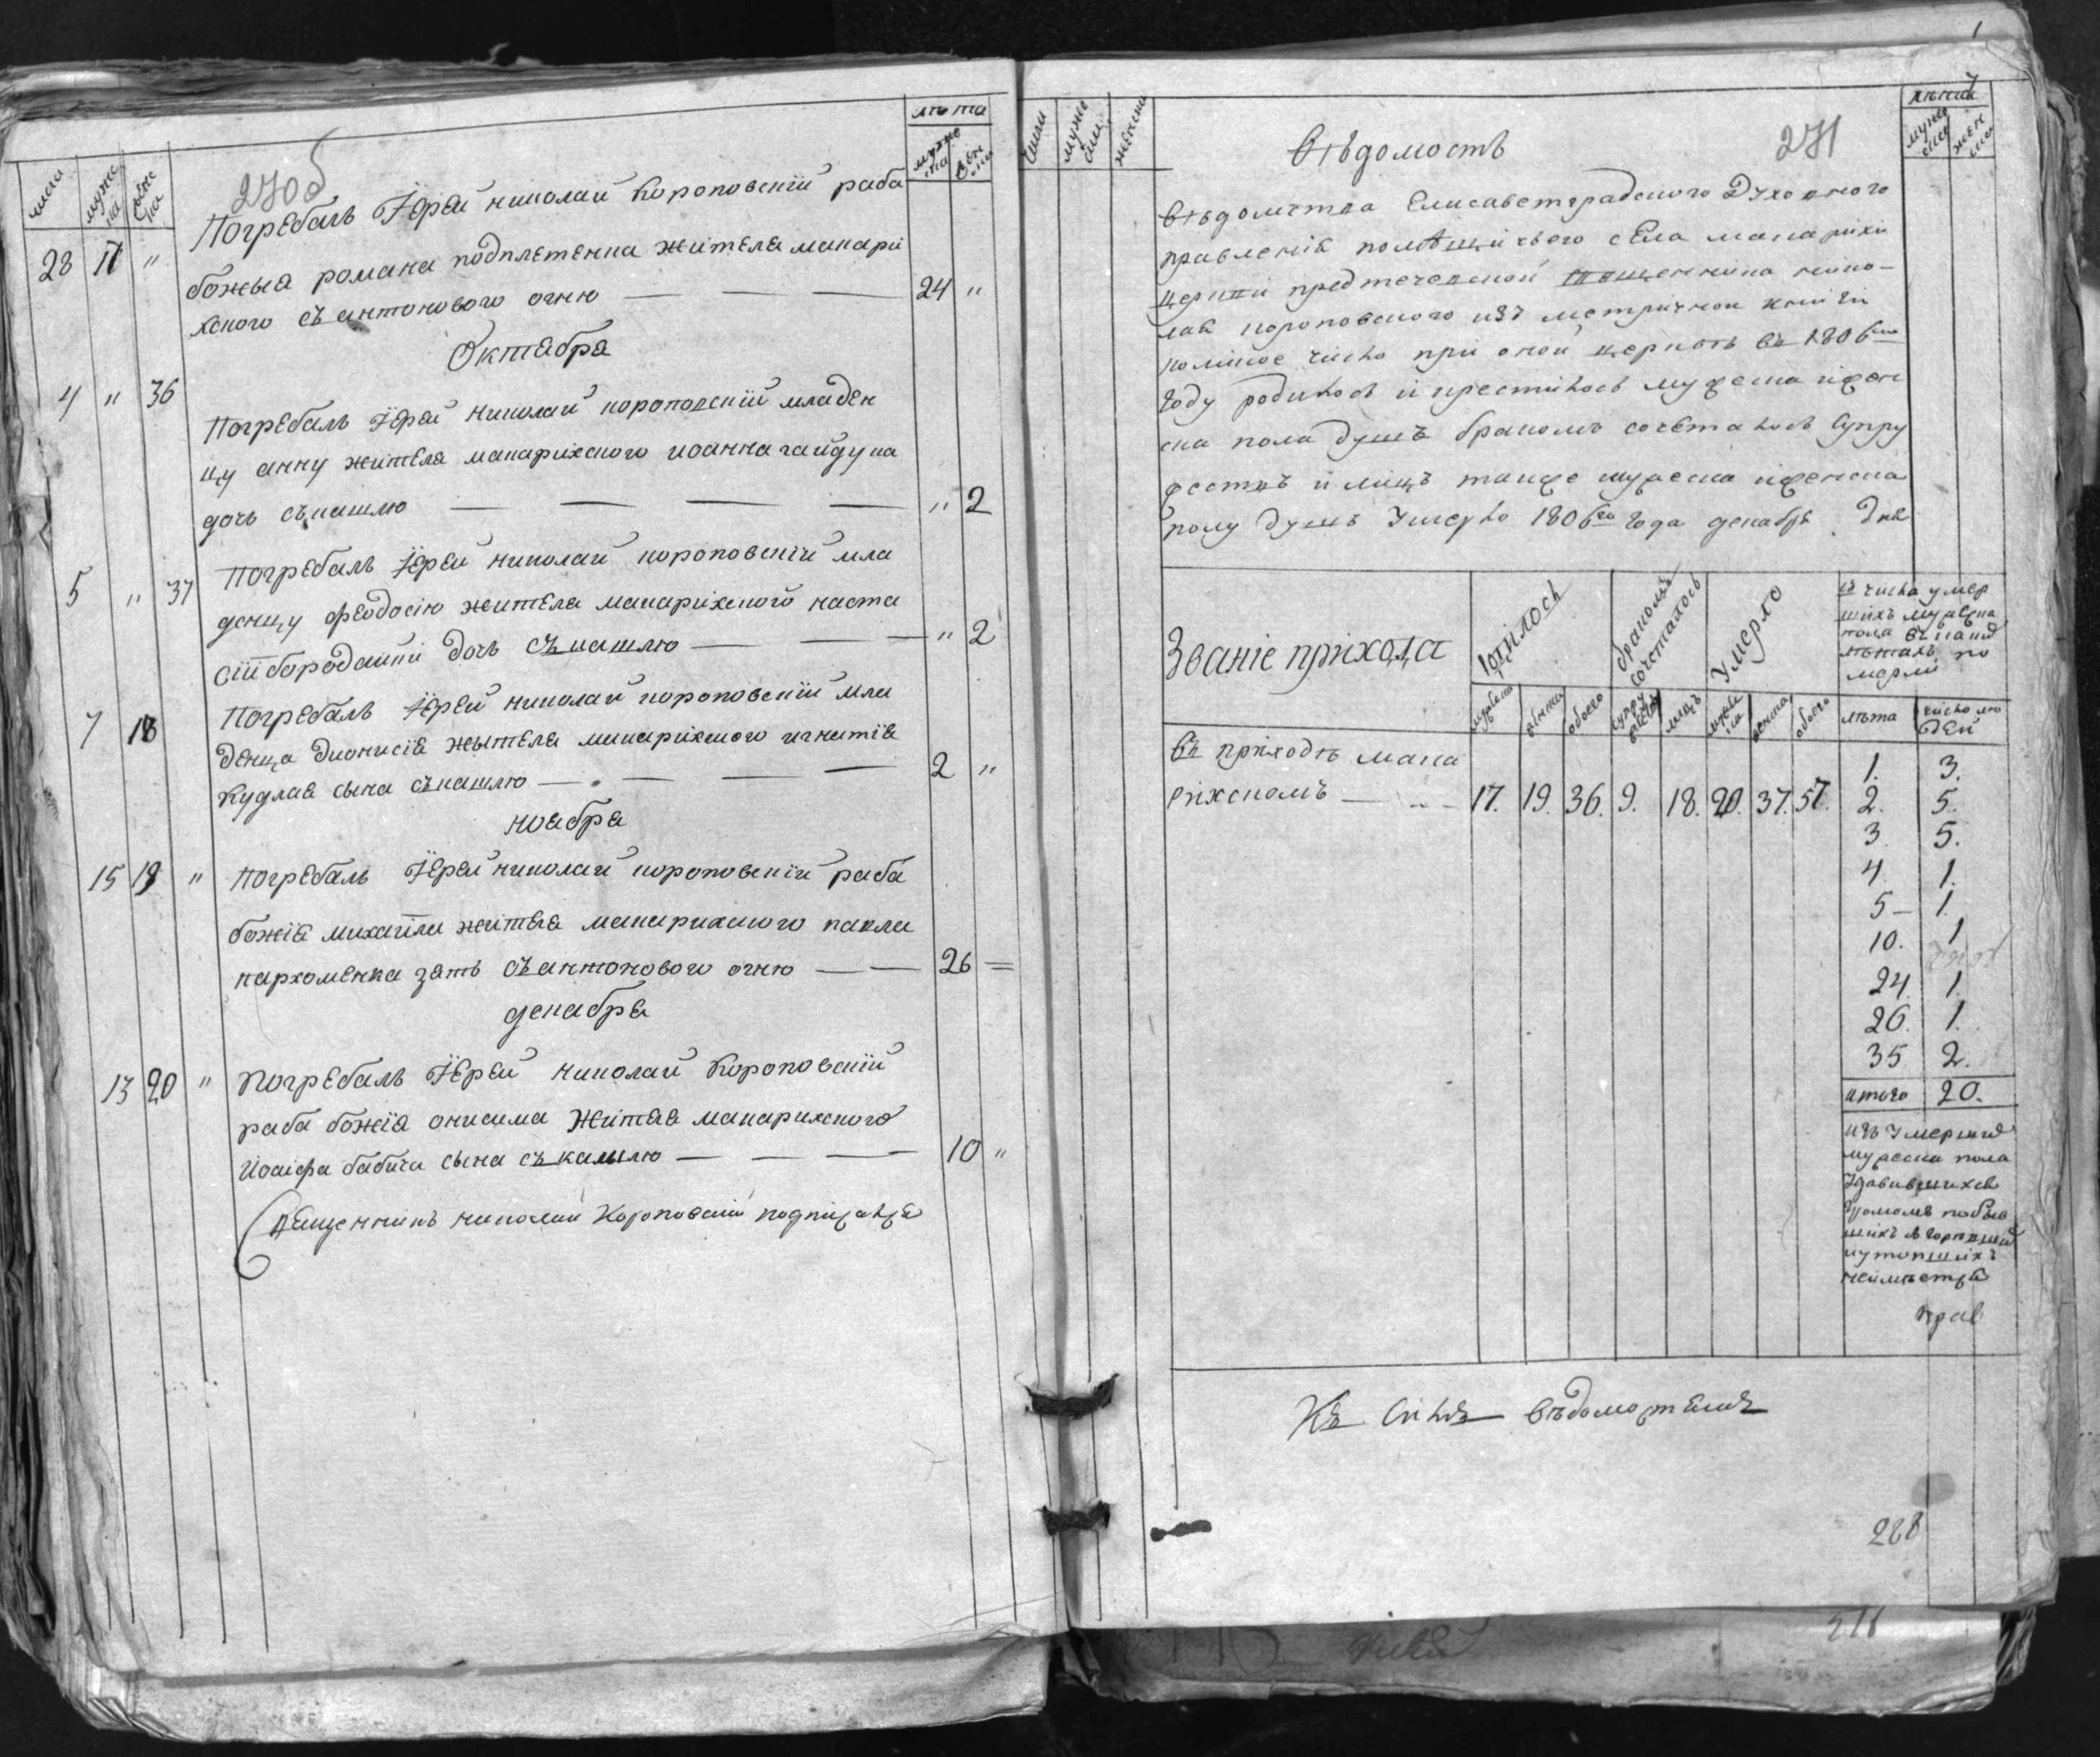 лѣта
числа мужска женска
мужска женска
270б
28 17 " Погребалъ Іерей николай Короповскій раба
божыя романа подплетенка жителя макари
хского съ антонового огню — — — 24 "
Октября
4 " 36 Погребалъ Іерей николай короповскій младен
цу анну жителя макарихского иоанна гайдука
дочь съ кашлю — — — — " 2
5 " 37 Погребалъ Іерей николай короповскій мла
денцу феодосію жителя макарихского наста
сіи бородайки дочь съ кашлю — — — " 2
7 18 Погребалъ Іерей николай короповскій мла
денца дионисія жытеля макарихского игнатія
Кудлая сына съ кашлю — — — — 2 "
ноября
15 19 " погребалъ Іерей николай короповскій раба
божія михаила жителя макарихского павла
пархоменка зять съ антонового огню — — 26 =
декабря
13 20 " Погребалъ Іерей николай Короповскій
раба божія онисима жителя макарихского
Иоаіфа бабича сына съ кашлю — — — — 10 "
Священникъ николай Короповскій подписался
числа мужеска женска
лѣтъ
мужеска женска
Вѣдомость 271
вѣдомства Елисаветградского Духовного
правленія помѣщичьего села макарихи
церкви предтечевской священника нико-
лая короповского изъ метричной книги
коликое число при оной церквѣ въ 1806мъ
году родилось и крестилось мужеска и жен
ска пола душъ бракомъ сочеталось супру
жествъ и лицъ также мужеска и женска
полу душъ умерло 1806го года декабря дня
Званіе прихода
родилось
бракомъ сочеталось
Умерло
съ числа умер
шихъ мужеска
пола въ какид
лѣтахъ по
мерли
мужеска женска обоего супружествъ лицъ мужеска женска обоего
лѣта число лю
дей
въ приходѣ мака
рихскомъ — — 17. 19. 36. 9. 18. 20. 37. 57.
1. 3.
2. 5.
3 5.
4 1.
5 – 1.
10. 1
24. 1.
26. 1.
35 2.
итого 20.
изъ умершид
мужеска пола
удавившихся
громомъ побые
шихъ згорѣвшид
иутопшихъ
неимѣется
Къ симъ вѣдомостямъ
268